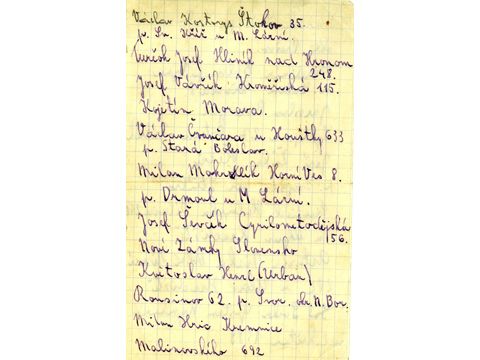 Václav Kostrys Štokov 35.
p. Sv. Kříž u M. Lázní.
Turčok Josef Hliník nad Hronom
248.
Josef Vávřík Kroměřížská 115.
Kojetín Morava.
Václav Švančara u Houštky 633
p. Stará Boleslav.
Milan Horní Ves 8.
p. Drmoul u M Lázní.
Josef Ševčík Cyrilometodějská
56.
Nové Zámky Slovensko
Květoslav (Urban)
Rousinov 62. p. Svor. okr. N. Bor.
Milan Hric Kremnice
Malinovského 692